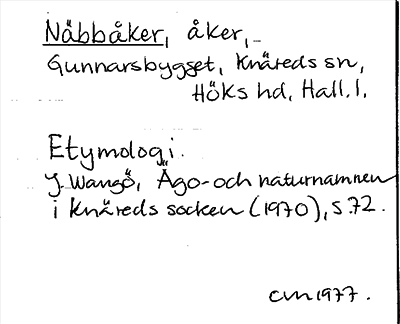 Näbbåker, åker,
Gunnarsbygget, Knäreds sn,
Höks hd, Hall. l.
Etymologi.
J. Wangö, Ägo- och naturnamnen
i Knäreds socken (1970), s. 72.
cm 1977.